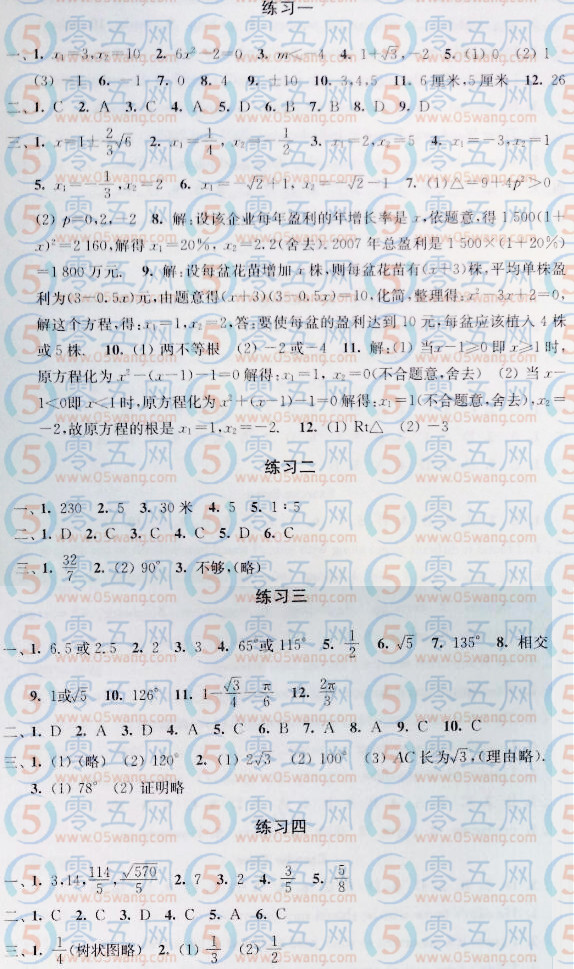 练习一
一、1. x₁=3,x₂=10 2. 6x²-2=0 3. m<-4 4. 1+√3,-2 5. (1) 0 (2) 1
(3) -1 6. -1 7. 0 8. 4 9. ±10 10. 3,4,5 11. 6厘米,5厘米 12. 26
二、1. C 2. A 3. C 4. A 5. D 6. B 7. B 8. D 9. D
三、1. x=1±2/3√6 2. x₁=1/4, x₂=-1/2 3. x₁=2,x₂=5 4. x₁=-3,x₂=1
5. x₁=-1/3,x₂=2 6. x₁=-√2+1, x₂=-√2-1 7. (1)△=9+4p²>0
(2) p=0,2,-2 8. 解:设该企业每年盈利的年增长率是x,依题意,得1 500(1+
x)²=2 160,解得x₁=20%, x₂=-2.2(舍去).2007年总盈利是1 500×(1+20%)
=1 800万元. 9. 解:设每盆花苗增加x株,则每盆花苗有(x+3)株,平均单株盈
利为(3-0.5x)元,由题意得(x+3)(3-0.5x)=10,化简,整理得:x²-3x+2=0,
解这个方程,得:x₁=1,x₂=2,答:要使每盆的盈利达到10元,每盆应该植入4株
或5株. 10. (1) 两不等根 (2) -2或-4 11. 解:(1) 当x-1≥0即x≥1时,
原方程化为x²-(x-1)-1=0解得:x₁=1, x₂=0(不合题意,舍去) (2) 当x-
1<0即x<1时,原方程化为x²+(x-1)-1=0解得:x₁=1(不合题意,舍去),x₂=
-2,故原方程的根是x₁=1,x₂=-2. 12. (1) Rt△ (2) -3
练习二
一、1. 230 2. 5 3. 30米 4. 5 5. 1:5
二、1. D 2. C 3. C 4. C 5. D 6. C
三、1. 32/7 2. (2) 90° 3. 不够,(略)
练习三
一、1. 6.5或2.5 2. 2 3. 3 4. 65°或115° 5. 1/2 6. √5 7. 135° 8. 相交
9. 1或√5 10. 126° 11. 1-√3/4-π/6 12. 2π/3
二、1. D 2. A 3. D 4. A 5. C 6. B 7. A 8. A 9. C 10. C
三、1. (1) (略) (2) 120° 2. (1) 2√3 (2) 100° (3) AC长为√3,(理由略).
3. (1) 78° (2) 证明略
练习四
一、1. 3,14,114/5,√570/5 2. 7 3. 2 4. 3/5 5. 5/8
二、1. C 2. C 3. D 4. C 5. A 6. C
三、1. 1/4(树状图略) 2. (1) 1/3 (2) 1/2